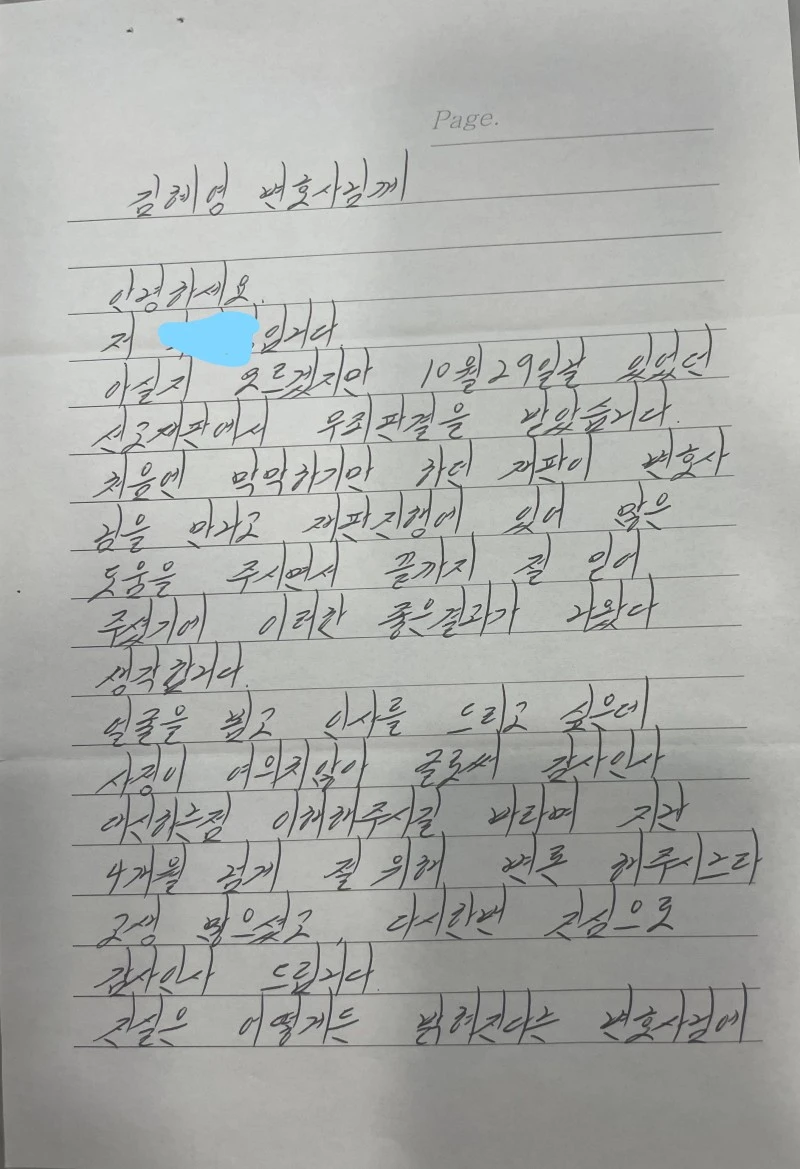 Page.
김혜영 변호사님께
안녕하세요.
저 입니다.
아실지 모르겠지만 10월 29일날 있었던
선고재판에서 무죄판결을 받았습니다.
처음에 막막하기만 하던 재판이 변호사
님을 만나고 재판진행에 있어 많은
도움을 주시면서 끝까지 절 믿어
주셨기에 이러한 좋은결과가 나왔다
생각합니다.
얼굴을 뵙고 인사를 드리고 싶은데
사정이 여의치않아 글로써 감사인사
대신하는점 이해해주시길 바라며 지난
4개월 넘게 절 위해 변론 해주시느라
고생 많으셨고, 다시한번 진심으로
감사인사 드립니다.
진실은 어떻게든 밝혀진다는 변호사님에